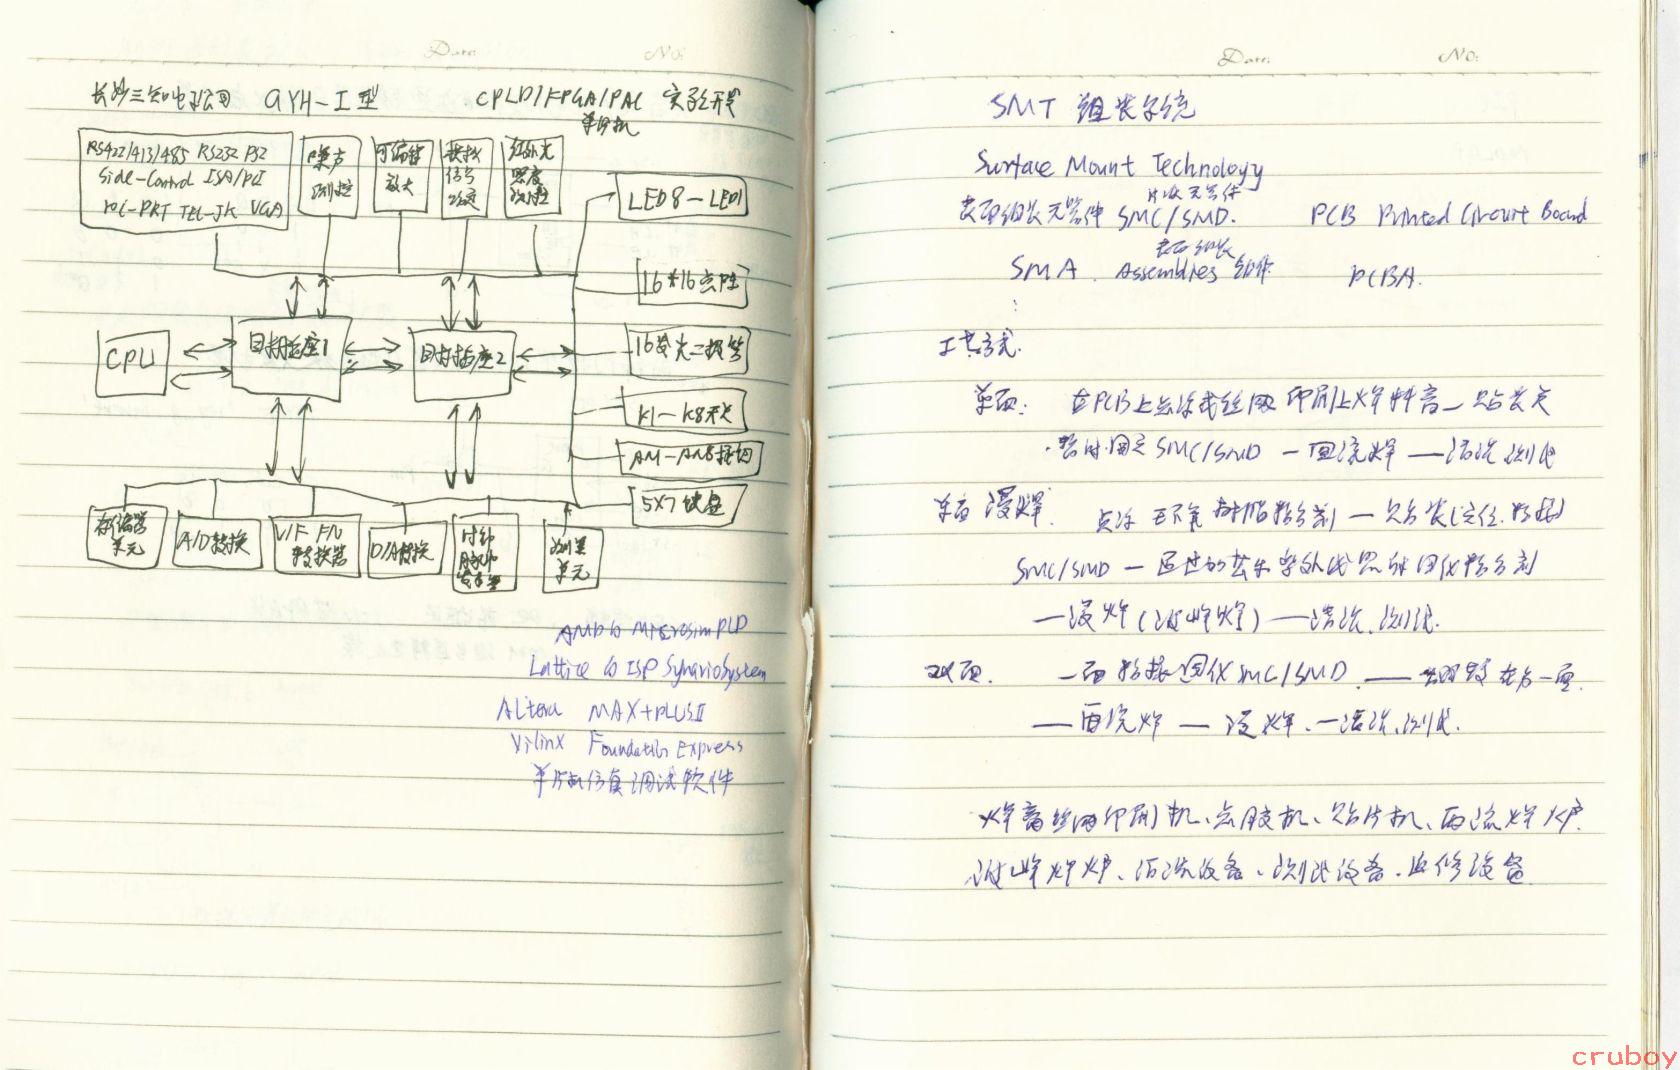 Date:
No:
长沙三知电子公司 GYH-I型 CPLD/FPGA/PAC 实验开发
单片机
RS422/413/485 RS232 PS2
Side-Control ISA/PCI
-PRT TEL-JK VGA
噪声
测控
可编程
放大
模拟
信号
红外光
照度
测控
LED8-LED1
16*16点阵
16发光二极管
K1-K8开关
AN1-AN8按钮
5X7键盘
CPU
目标插座1
目标插座2
存储器
单元
A/D转换
V/F F/V
转换器
D/A转换
时钟
脉冲
发生器
测量
单元
AMD的 Microsim PLD
Lattice 的 ISP Synario System
Altera MAX+PLUSII
Xilinx Foundation Express
单片机仿真调试软件
Date:
No:
SMT 组装系统
Surface Mount Technology
片状元器件
表面组装元器件 SMC/SMD. PCB Printed Circuit Board
表面组装
SMA. Assemblies 组件 PCBA.
工艺方式.
单面: 在PCB上点涂或丝网印刷上焊料膏—贴装
暂时固定SMC/SMD—回流焊—清洗 测试
单面 浸焊. 点涂 环氧树脂粘合剂—贴装(定位.粘接)
SMC/SMD— 紫外线照射固化粘合剂
—浸焊(波峰焊)—清洗.测试.
双面. 一面粘接固化SMC/SMD.—在另一面.
—再流焊—浸焊.—清洗.测试.
焊膏丝网印刷机、点胶机、贴片机、再流焊炉.
波峰焊炉、清洗设备、测试设备.返修设备
cruboy